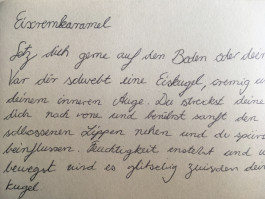 Eiscremkaramel
Setz dich gerne auf den Boden oder dein
Vor dir schwebt eine Eiskugel, cremig un
deinem inneren Auge. Du streckst deine
dich nach vorne und berührst sanft den
schlossenen Lippen und du spürs
beinflussen. Feuchtigkeit entsteht und u
bewegst wird es glitschig zwischen den
kugel